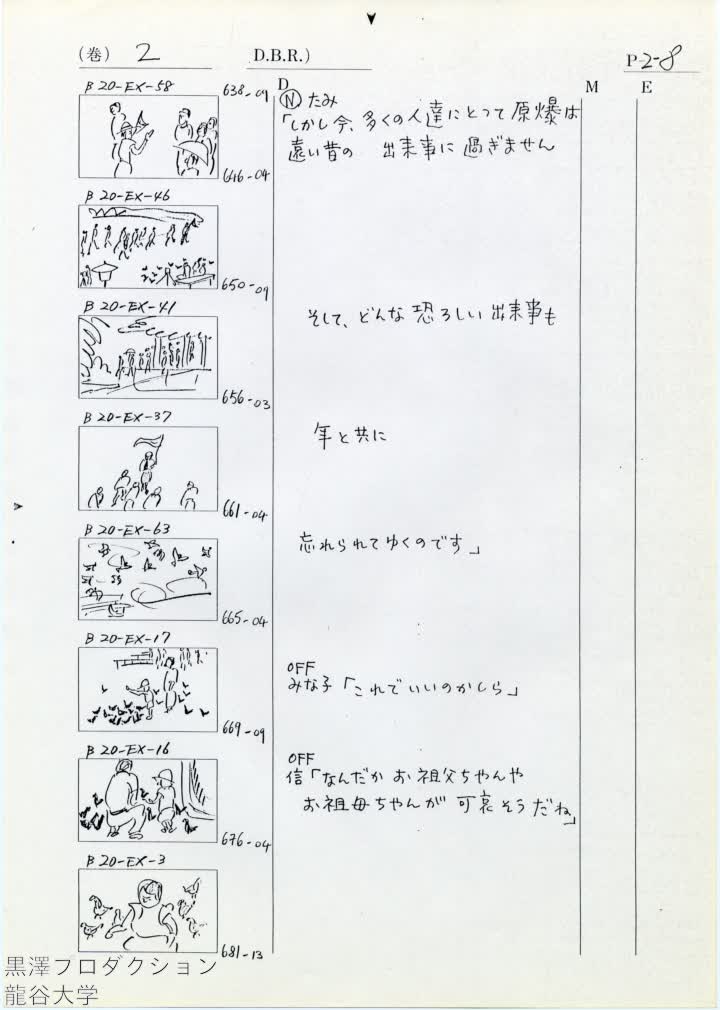 (巻) 2 D.B.R.) P2-8
D M E
β20-EX-58 638-09
Ⓝ たみ
「しかし今、多くの人達にとって原爆は
遠い昔の 出来事に 過ぎません
646-04
β20-EX-46
650-09
β20-EX-41
そして、どんな恐ろしい出来事も
656-03
β20-EX-37
年と共に
661-04
β20-EX-63
忘れられてゆくのです」
665-04
β20-EX-17
OFF
みな子「これでいいのかしら」
669-09
β20-EX-16
OFF
信「なんだか お祖父ちゃんや
お祖母ちゃんが 可哀そうだね」
676-04
β20-EX-3
681-13
黒澤プロダクション
龍谷大学